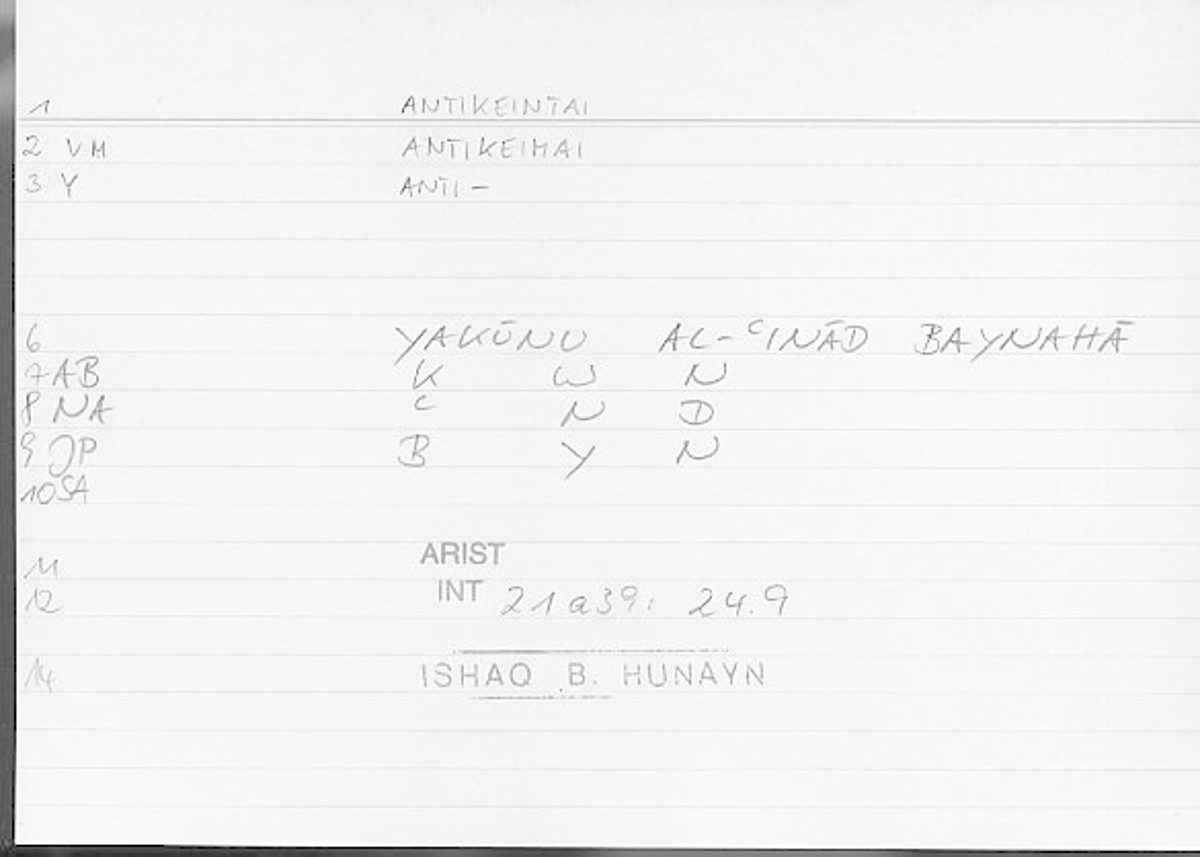 1 ANTIKEINTAI
2 VM ANTIKEIMAI
3 Y ANTI-
6 YAKŪNU AL-ʿINĀD BAYNAHĀ
7 AB K W N
8 NA ʿ N D
9 JP B Y N
10 SA
11 ARIST
12 INT 21a39: 24.9
14 ISHAQ B. HUNAYN